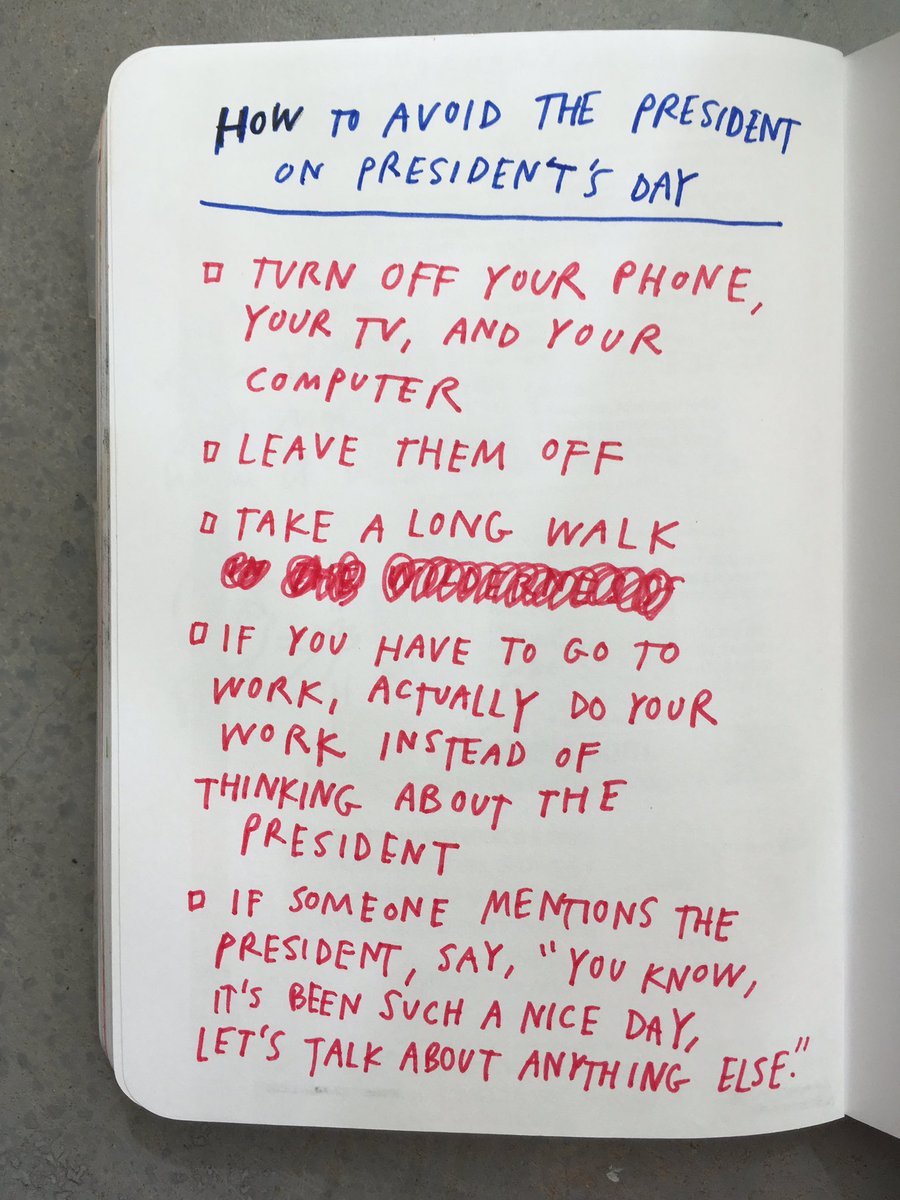 HOW TO AVOID THE PRESIDENT
ON PRESIDENT'S DAY
TURN OFF YOUR PHONE,
YOUR TV, AND YOUR
COMPUTER
LEAVE THEM OFF
TAKE A LONG WALK
IF YOU HAVE TO GO TO
WORK, ACTUALLY DO YOUR
WORK INSTEAD OF
THINKING ABOUT THE
PRESIDENT
IF SOMEONE MENTIONS THE
PRESIDENT, SAY, "YOU KNOW,
IT'S BEEN SUCH A NICE DAY,
LET'S TALK ABOUT ANYTHING ELSE."